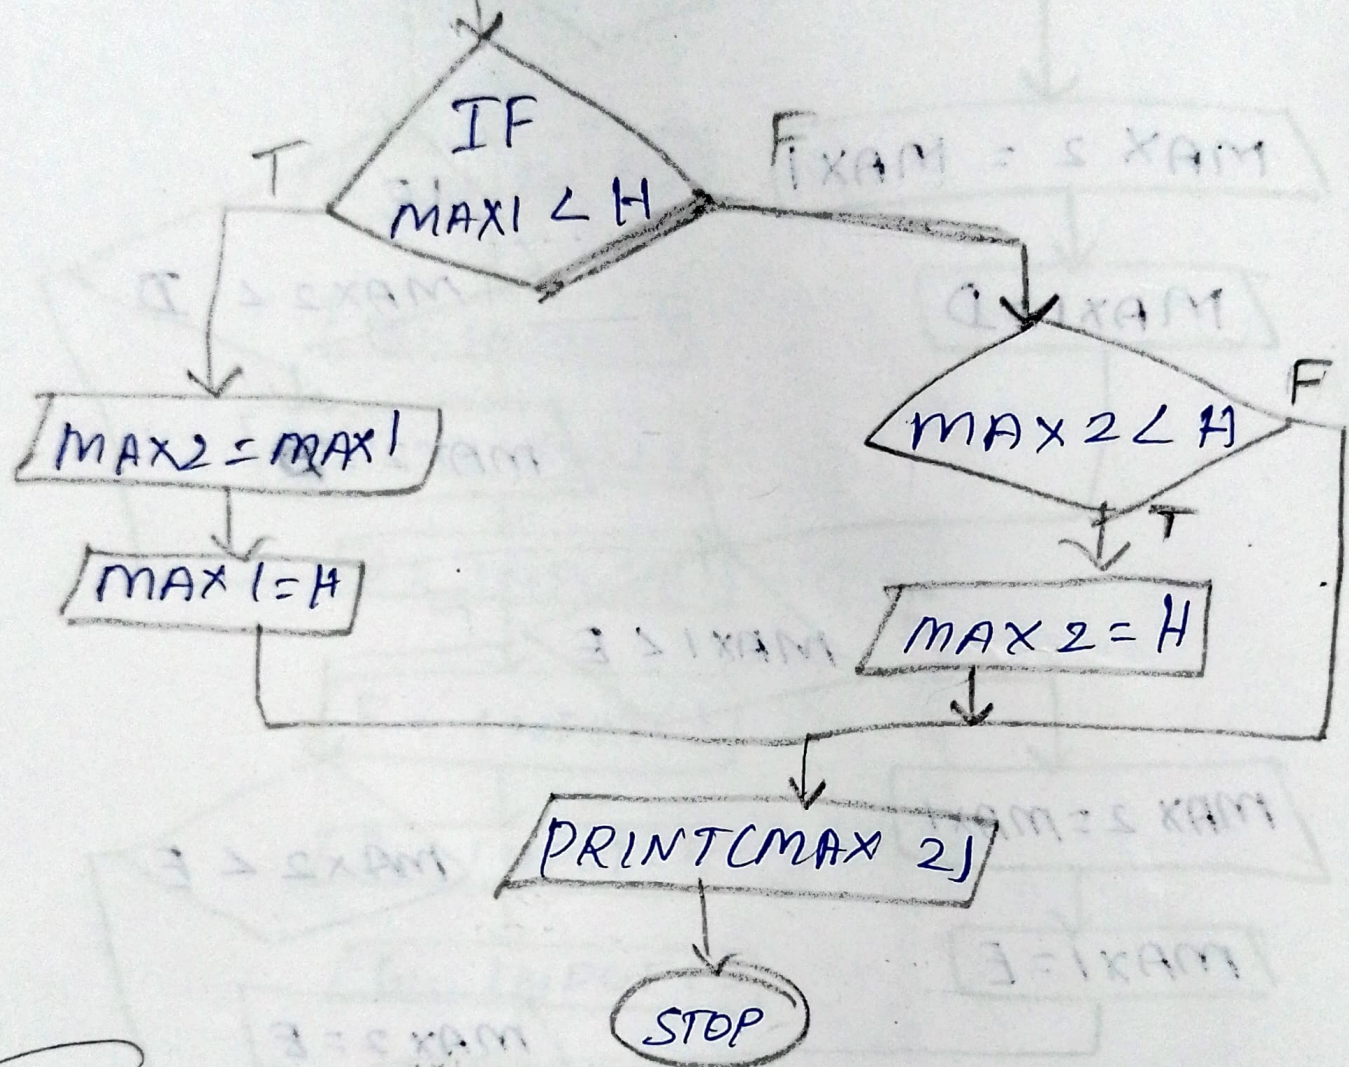 IF
MAX1 < H
T
F
MAX2 = MAX1
MAX1 = H
MAX2 < H
F
T
MAX 2 = H
PRINT(MAX 2)
STOP